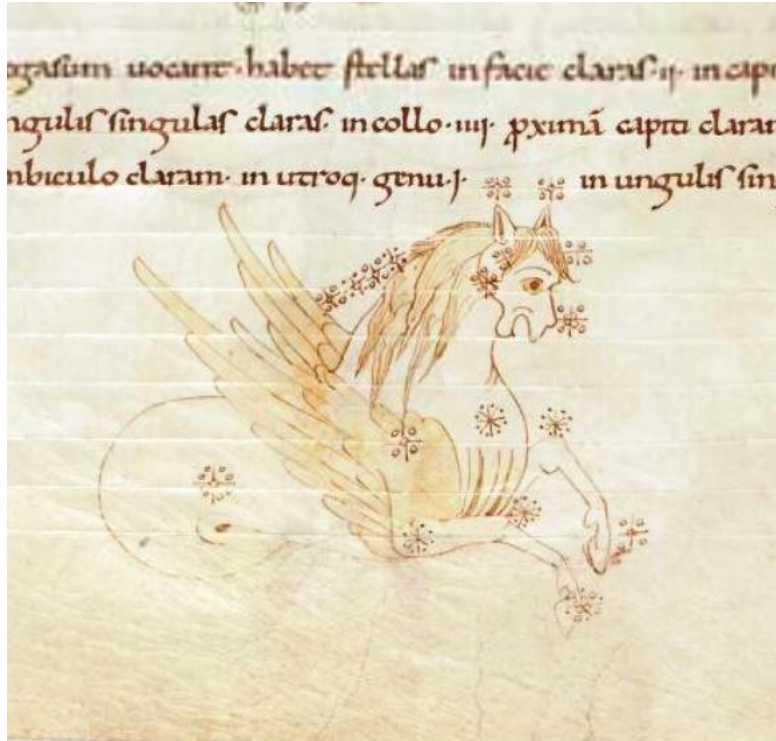 gasum uocant· habet stellas in facie claras·ii· in capi
ngulis singulas claras· in collo·iiij· ꝓximā capiti claram
mbiculo claram· in utroq· genu·j· in ungulis sin